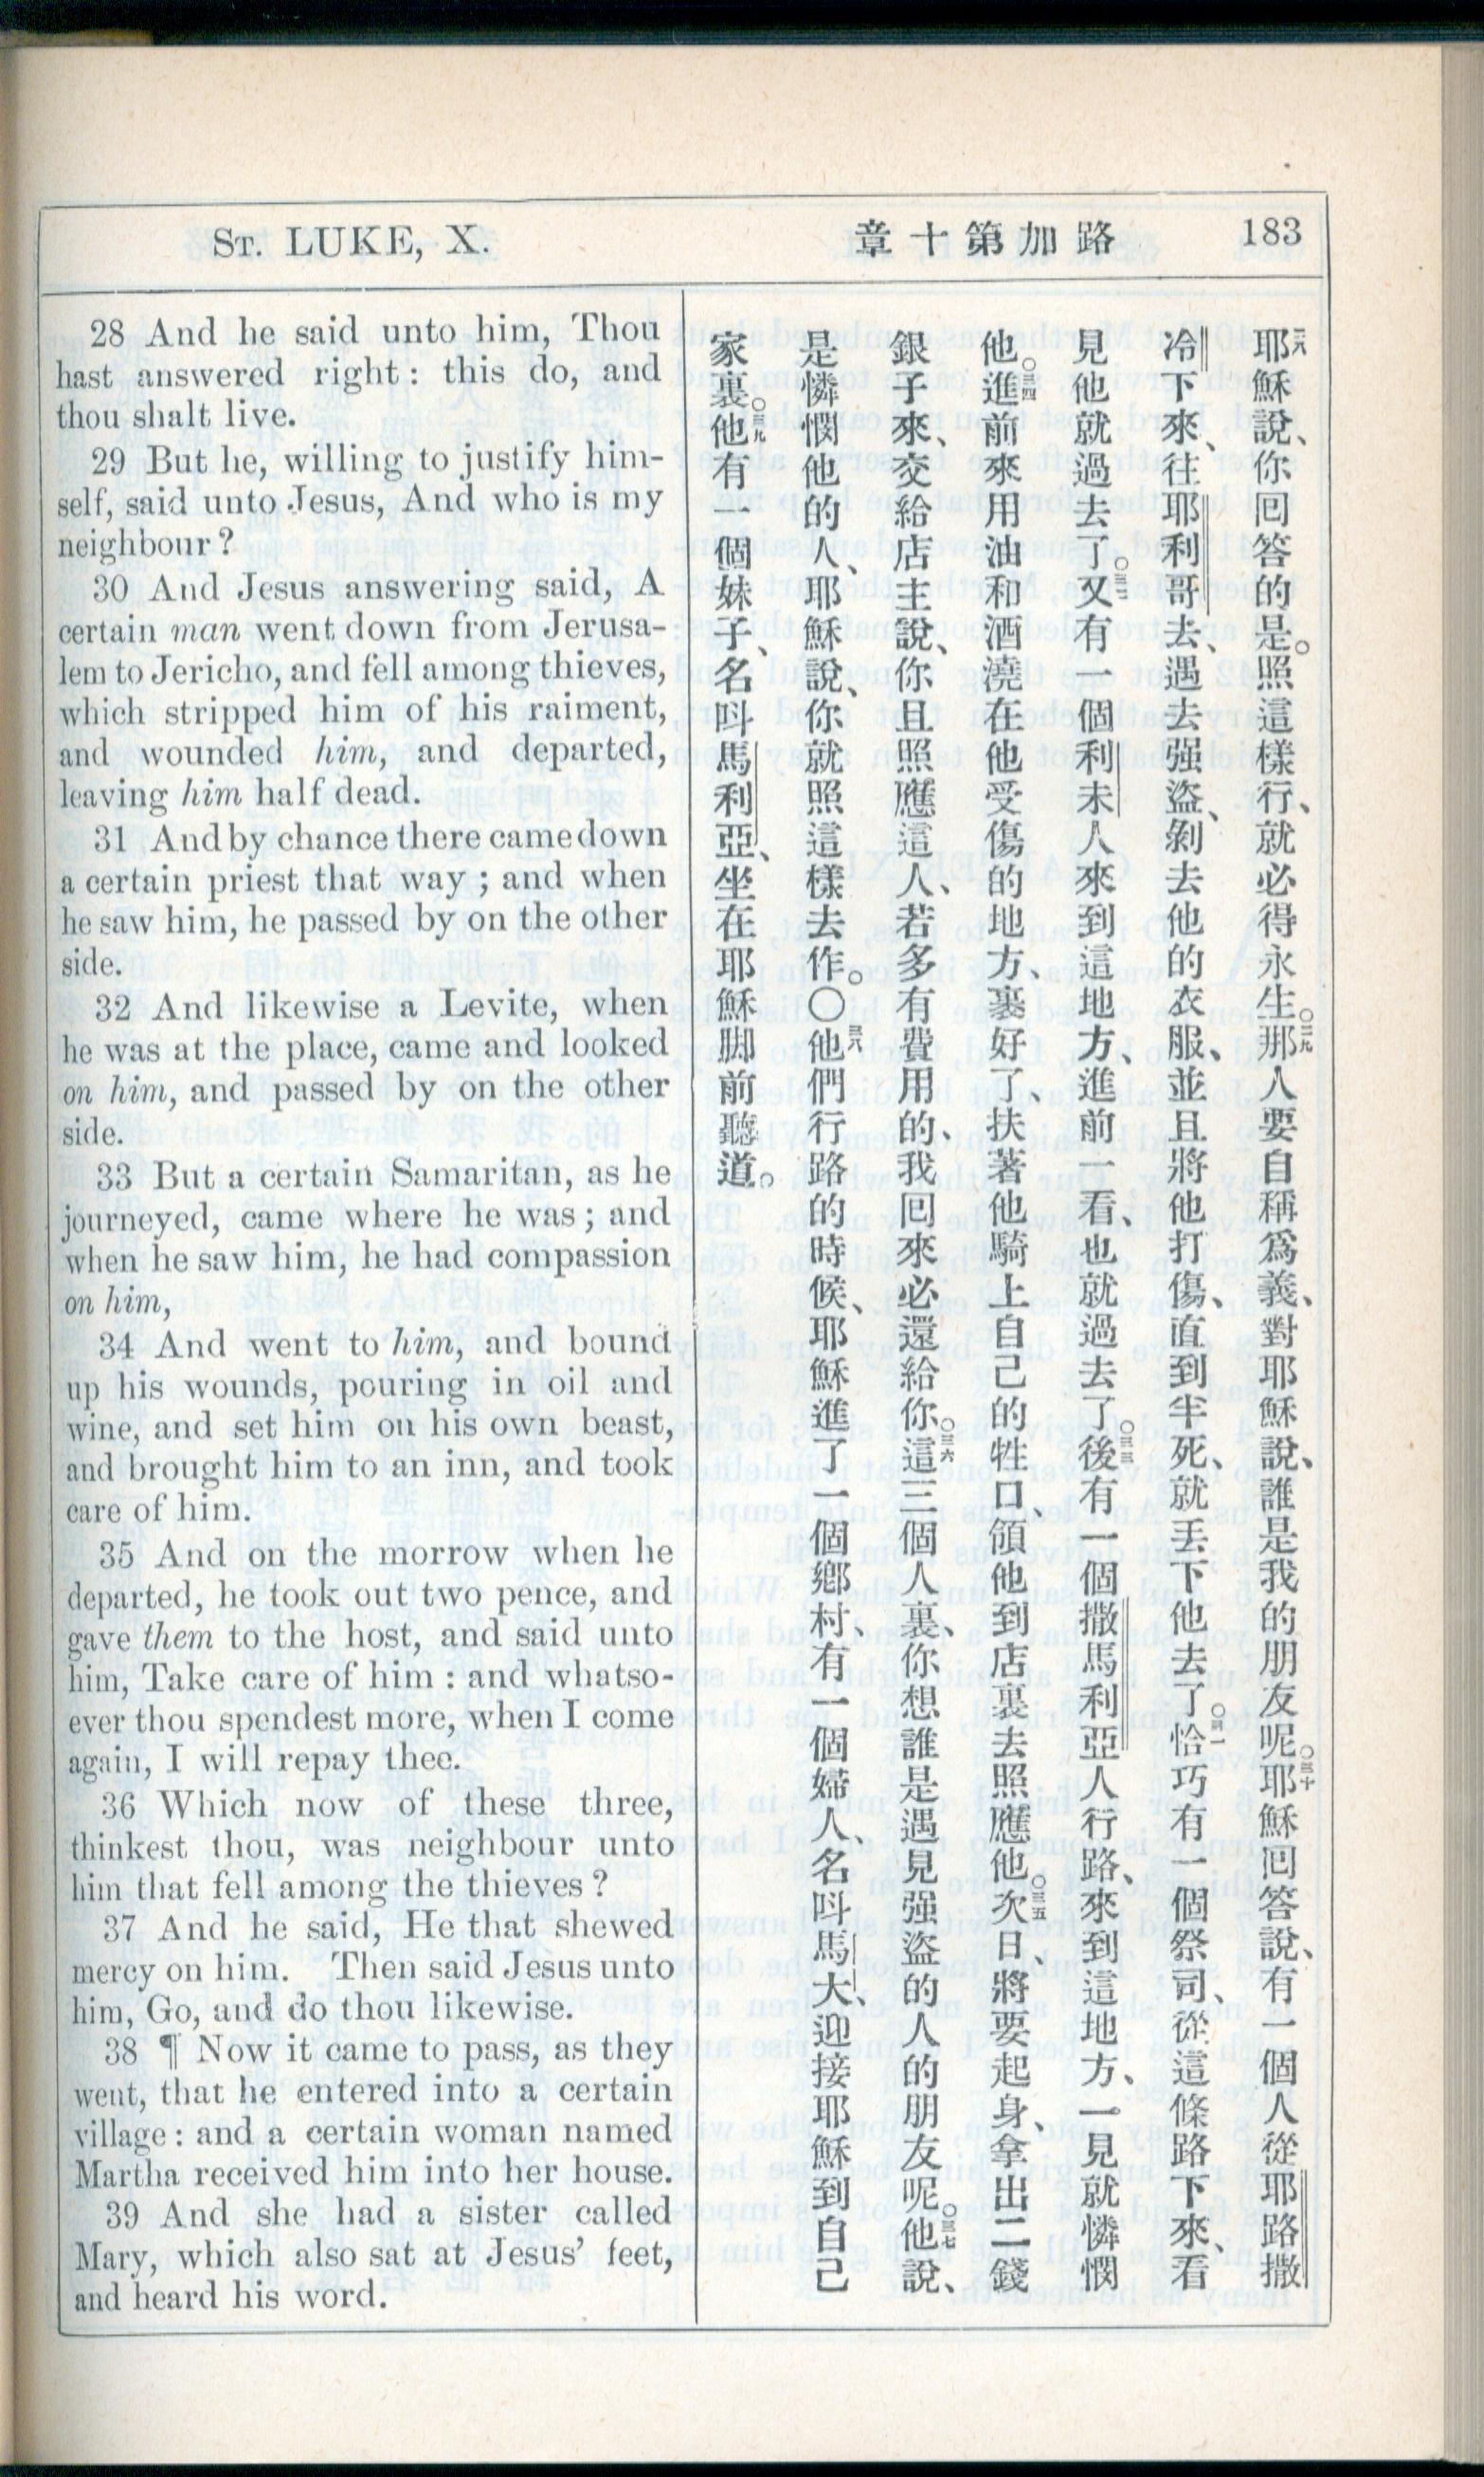 St. LUKE, X.
章十第加路
183
28 And he said unto him, Thou
hast answered right : this do, and
thou shalt live.
29 But he, willing to justify him-
self, said unto Jesus, And who is my
neighbour ?
30 And Jesus answering said, A
certain man went down from Jerusa-
lem to Jericho, and fell among thieves,
which stripped him of his raiment,
and wounded him, and departed,
leaving him half dead.
31 And by chance there came down
a certain priest that way ; and when
he saw him, he passed by on the other
side.
32 And likewise a Levite, when
he was at the place, came and looked
on him, and passed by on the other
side.
33 But a certain Samaritan, as he
journeyed, came where he was ; and
when he saw him, he had compassion
on him,
34 And went to him, and bound
up his wounds, pouring in oil and
wine, and set him on his own beast,
and brought him to an inn, and took
care of him.
35 And on the morrow when he
departed, he took out two pence, and
gave them to the host, and said unto
him, Take care of him : and whatso-
ever thou spendest more, when I come
again, I will repay thee.
36 Which now of these three,
thinkest thou, was neighbour unto
him that fell among the thieves ?
37 And he said, He that shewed
mercy on him. Then said Jesus unto
him, Go, and do thou likewise.
38 ¶ Now it came to pass, as they
went, that he entered into a certain
village : and a certain woman named
Martha received him into her house.
39 And she had a sister called
Mary, which also sat at Jesus' feet,
and heard his word.
二八耶穌說、你回答的是。照這樣行、就必得永生。○二九那人要自稱爲義、對耶穌說、誰是我的朋友呢。○三十耶穌回答說、有一個人從耶路撒
冷下來、往耶利哥去、遇去强盜、剝去他的衣服、並且將他打傷、直到半死、就丟下他去了。○三一恰巧有一個祭司、從這條路下來、看
見他就過去了。○三二又有一個利未人來到這地方、進前一看、也就過去了。○三三後有一個撒馬利亞人行路、來到這地方、一見就憐憫
他。○三四進前來用油和酒澆在他受傷的地方、裹好了、扶著他騎上自己的牲口、領他到店裏去照應他。○三五次日、將要起身、拿出二錢
銀子來、交給店主說、你且照應這人、若多有費用的、我回來必還給你。○三六這三個人裏、你想誰是遇見强盜的人的朋友呢。○三七他說、
是憐憫他的人、耶穌說、你就照這樣去作。〇三八他們行路的時候、耶穌進了一個鄉村、有一個婦人、名呌馬大、迎接耶穌到自己
家裏。○三九他有一個妹子、名呌馬利亞、坐在耶穌脚前聽道。